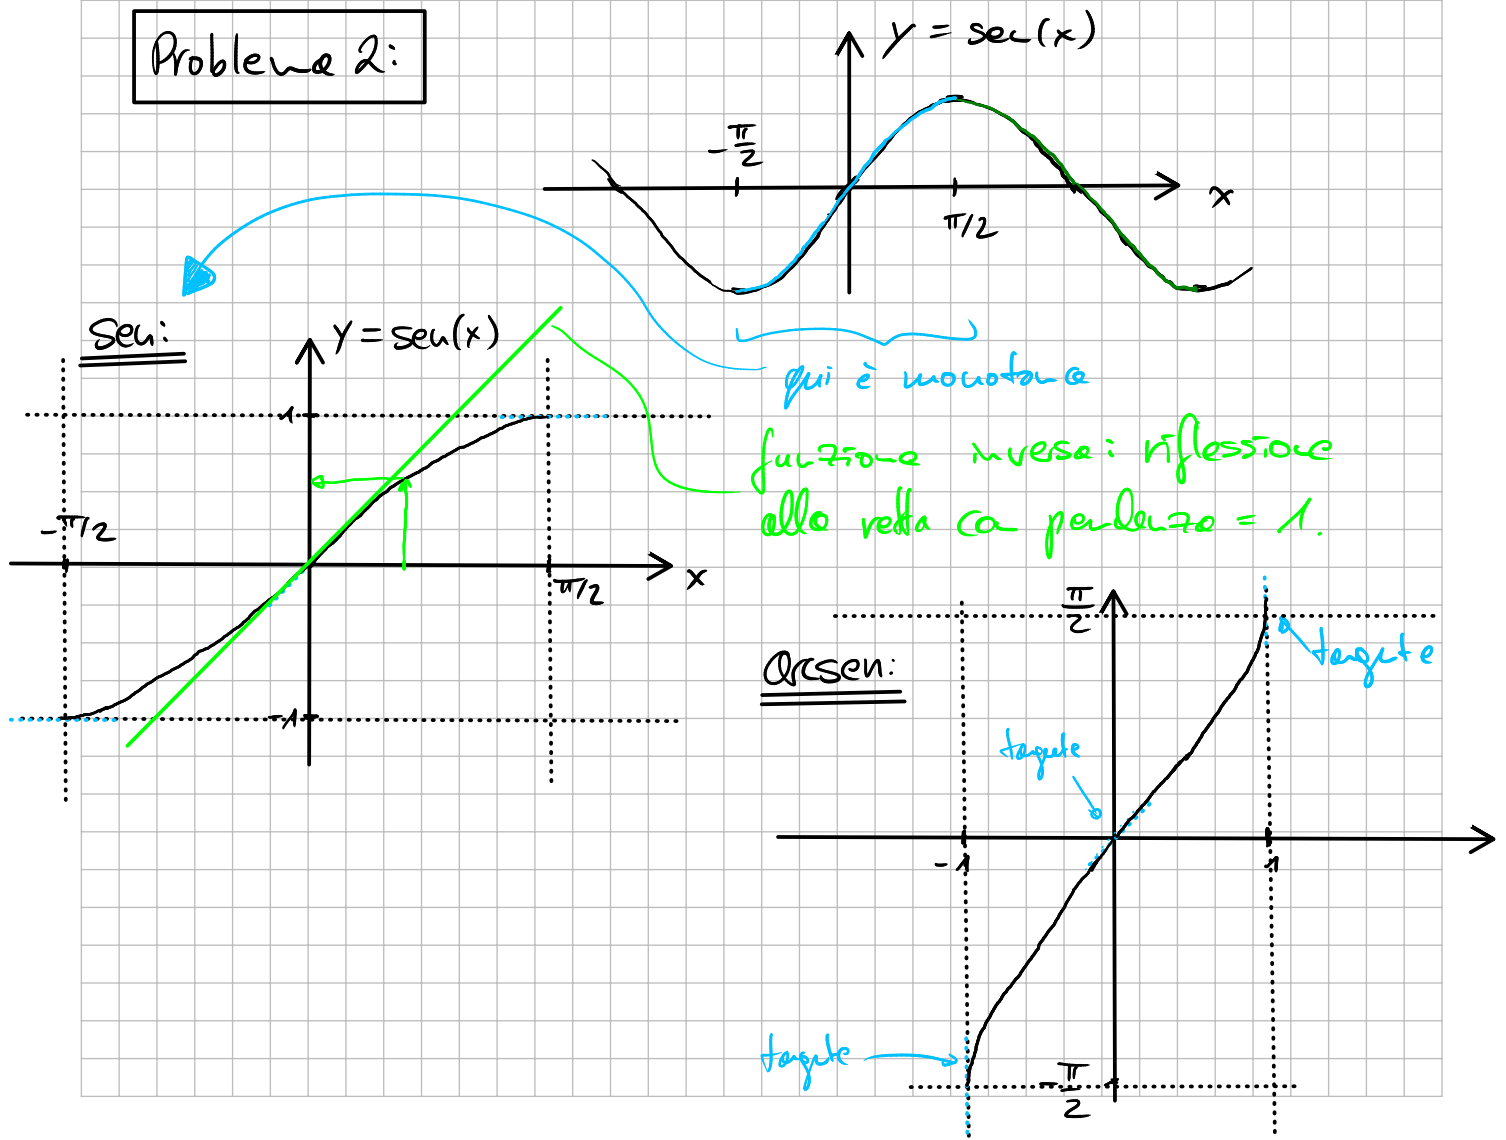 Problema 2:
y = sen(x)
-π/2
π/2
x
sen:
y = sen(x)
qui è monotona
1
funzione inversa: riflessione
alla retta con pendenza = 1.
-π/2
π/2
x
π/2
tangente
arcsen:
-1
tangente
-1
1
tangente
-π/2